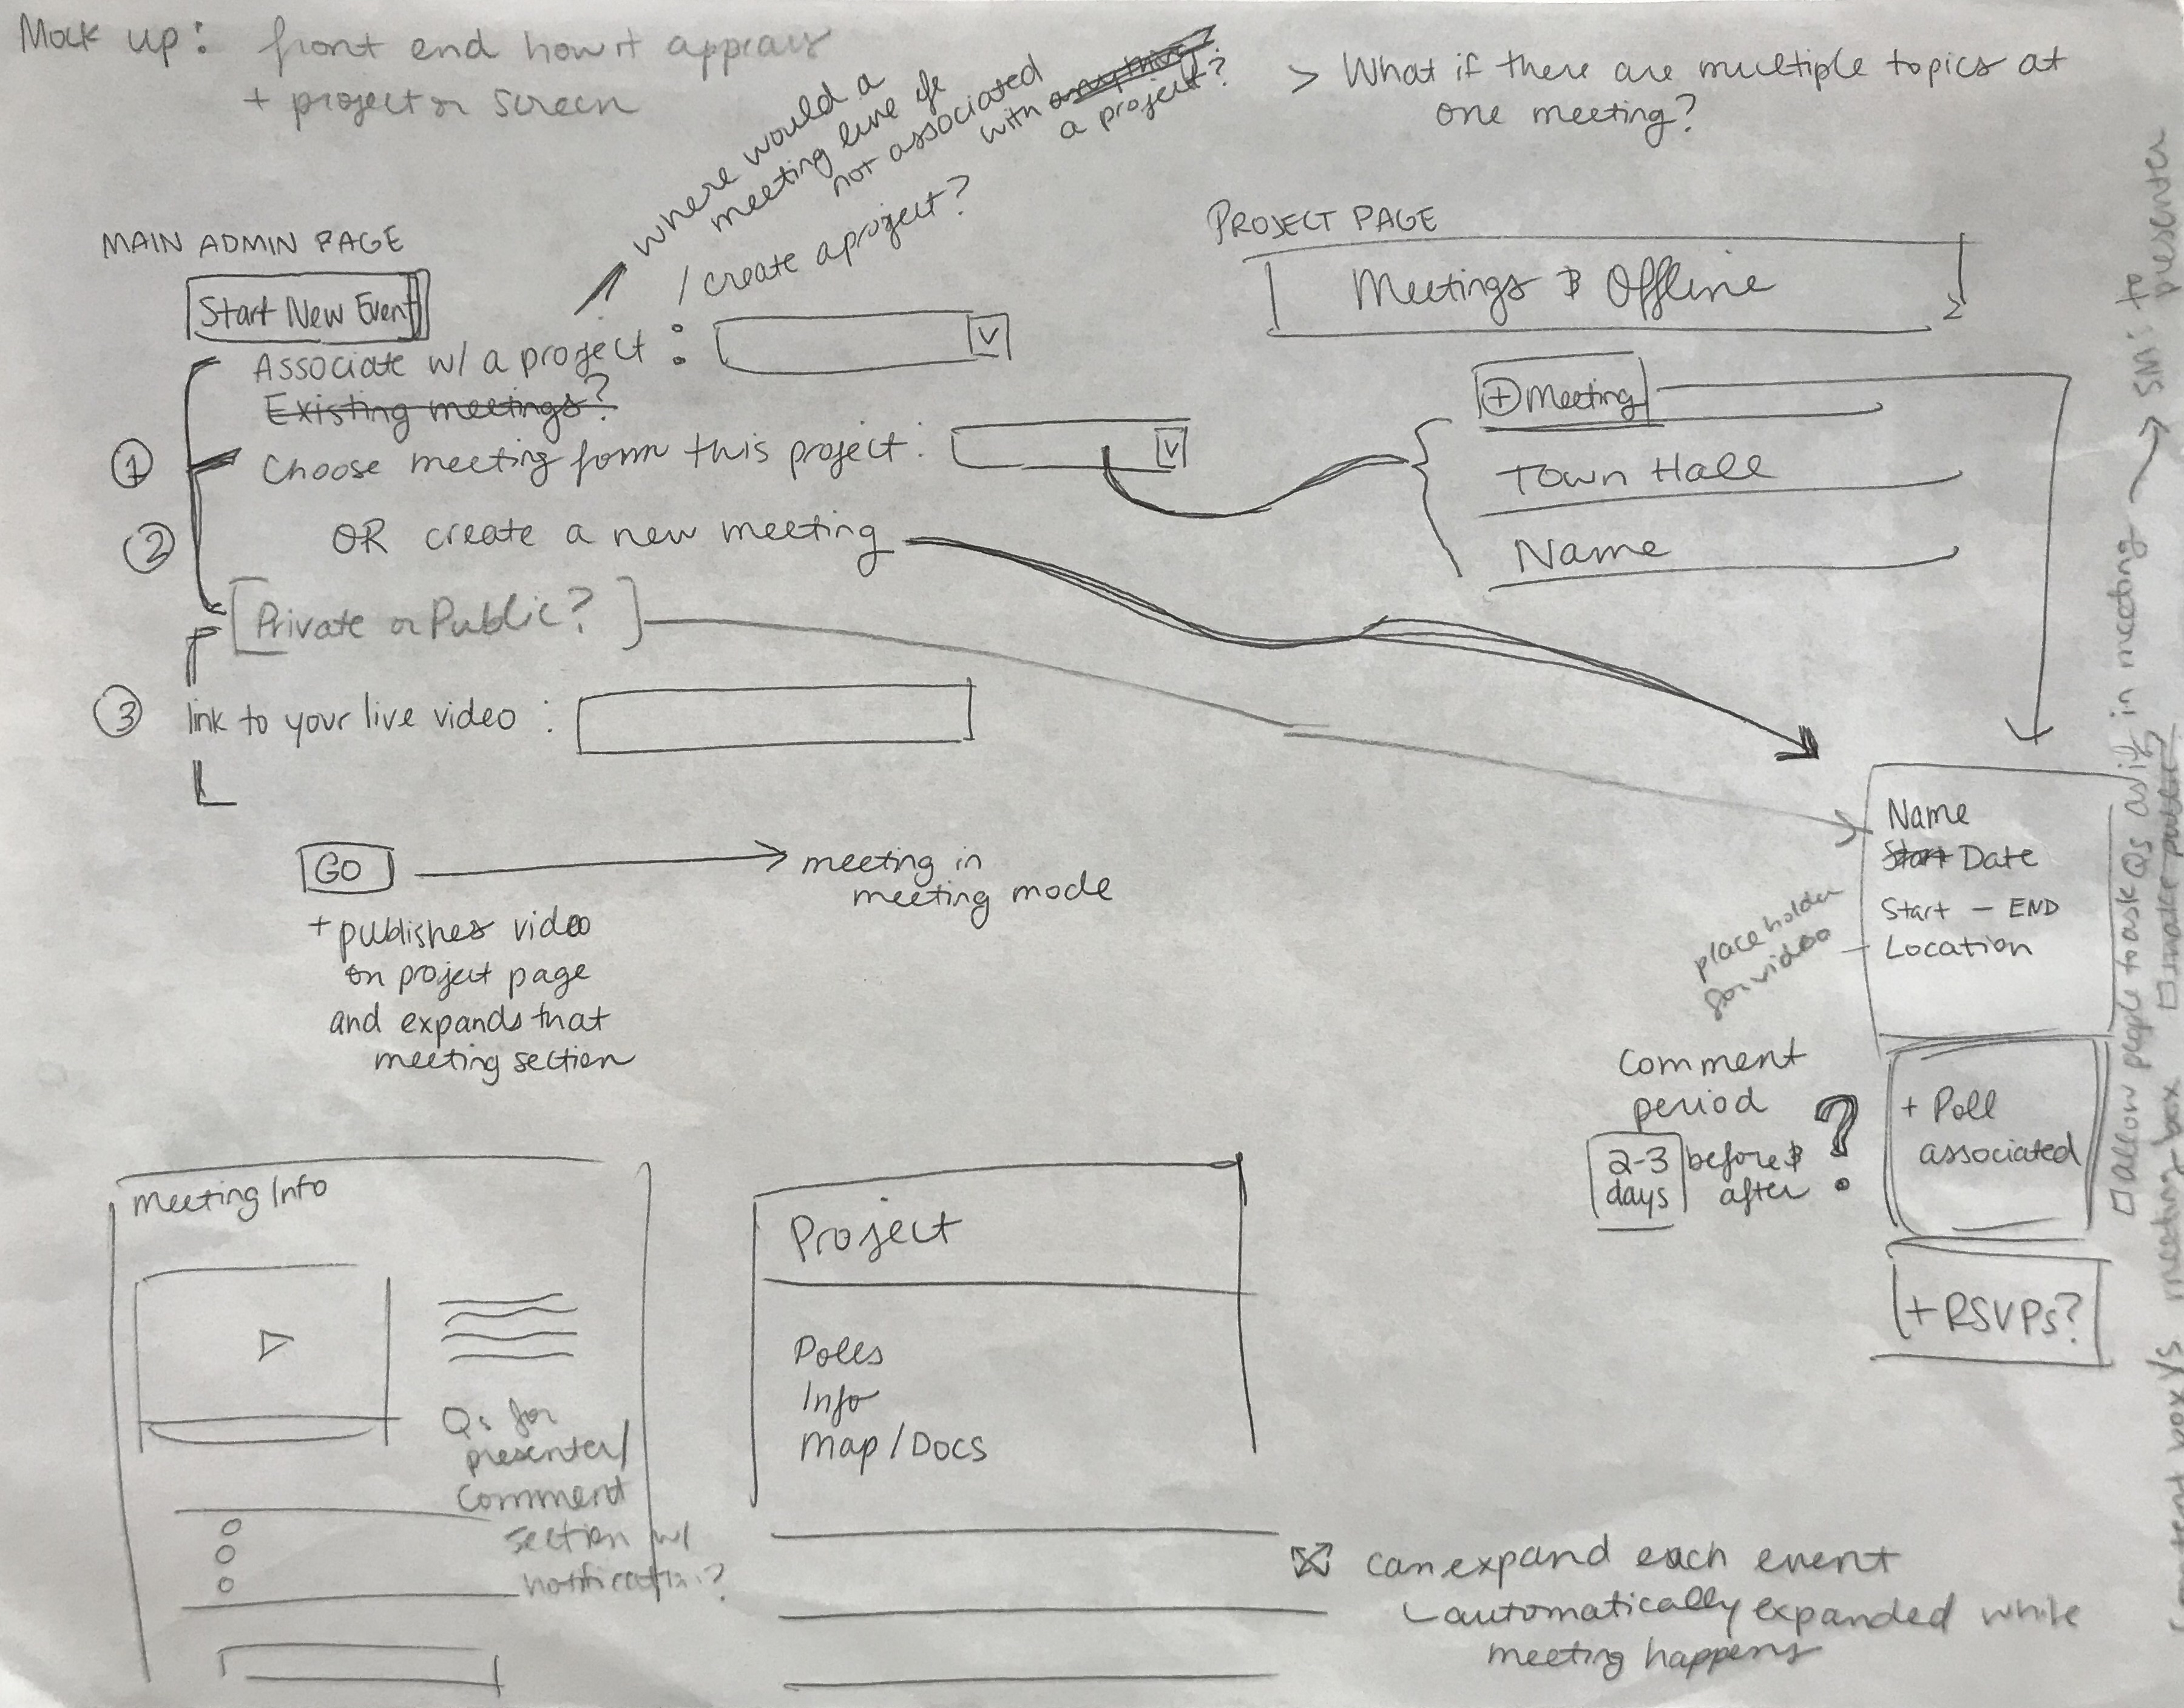 Mock up: front end how it appears
+ projector screen
where would a
meeting live if
not associated
with anything?
a project?
/ create a project?
> What if there are multiple topics at
one meeting?
MAIN ADMIN PAGE
Start New Event
Associate w/ a project :
Existing meetings?
① Choose meeting form this project :
② OR create a new meeting
[Private or Public?]
③ link to your live video :
GO
meeting in
meeting mode
+ publishes video
on project page
and expands that
meeting section
PROJECT PAGE
Meetings & Offline
+ Meeting
Town Hall
Name
Name
Start Date
Start - END
Location
placeholder
for video
comment
period
2-3
days
before &
after
?
+ Poll
associated
+ RSVPs?
allow people to ask Qs as if in meeting → SM's to
presenter
make public
meeting box
Meeting Info
Qs for
presenter/
comment
section w/
notification?
Project
Polls
Info
Map / Docs
can expand each event
automatically expanded while
meeting happens